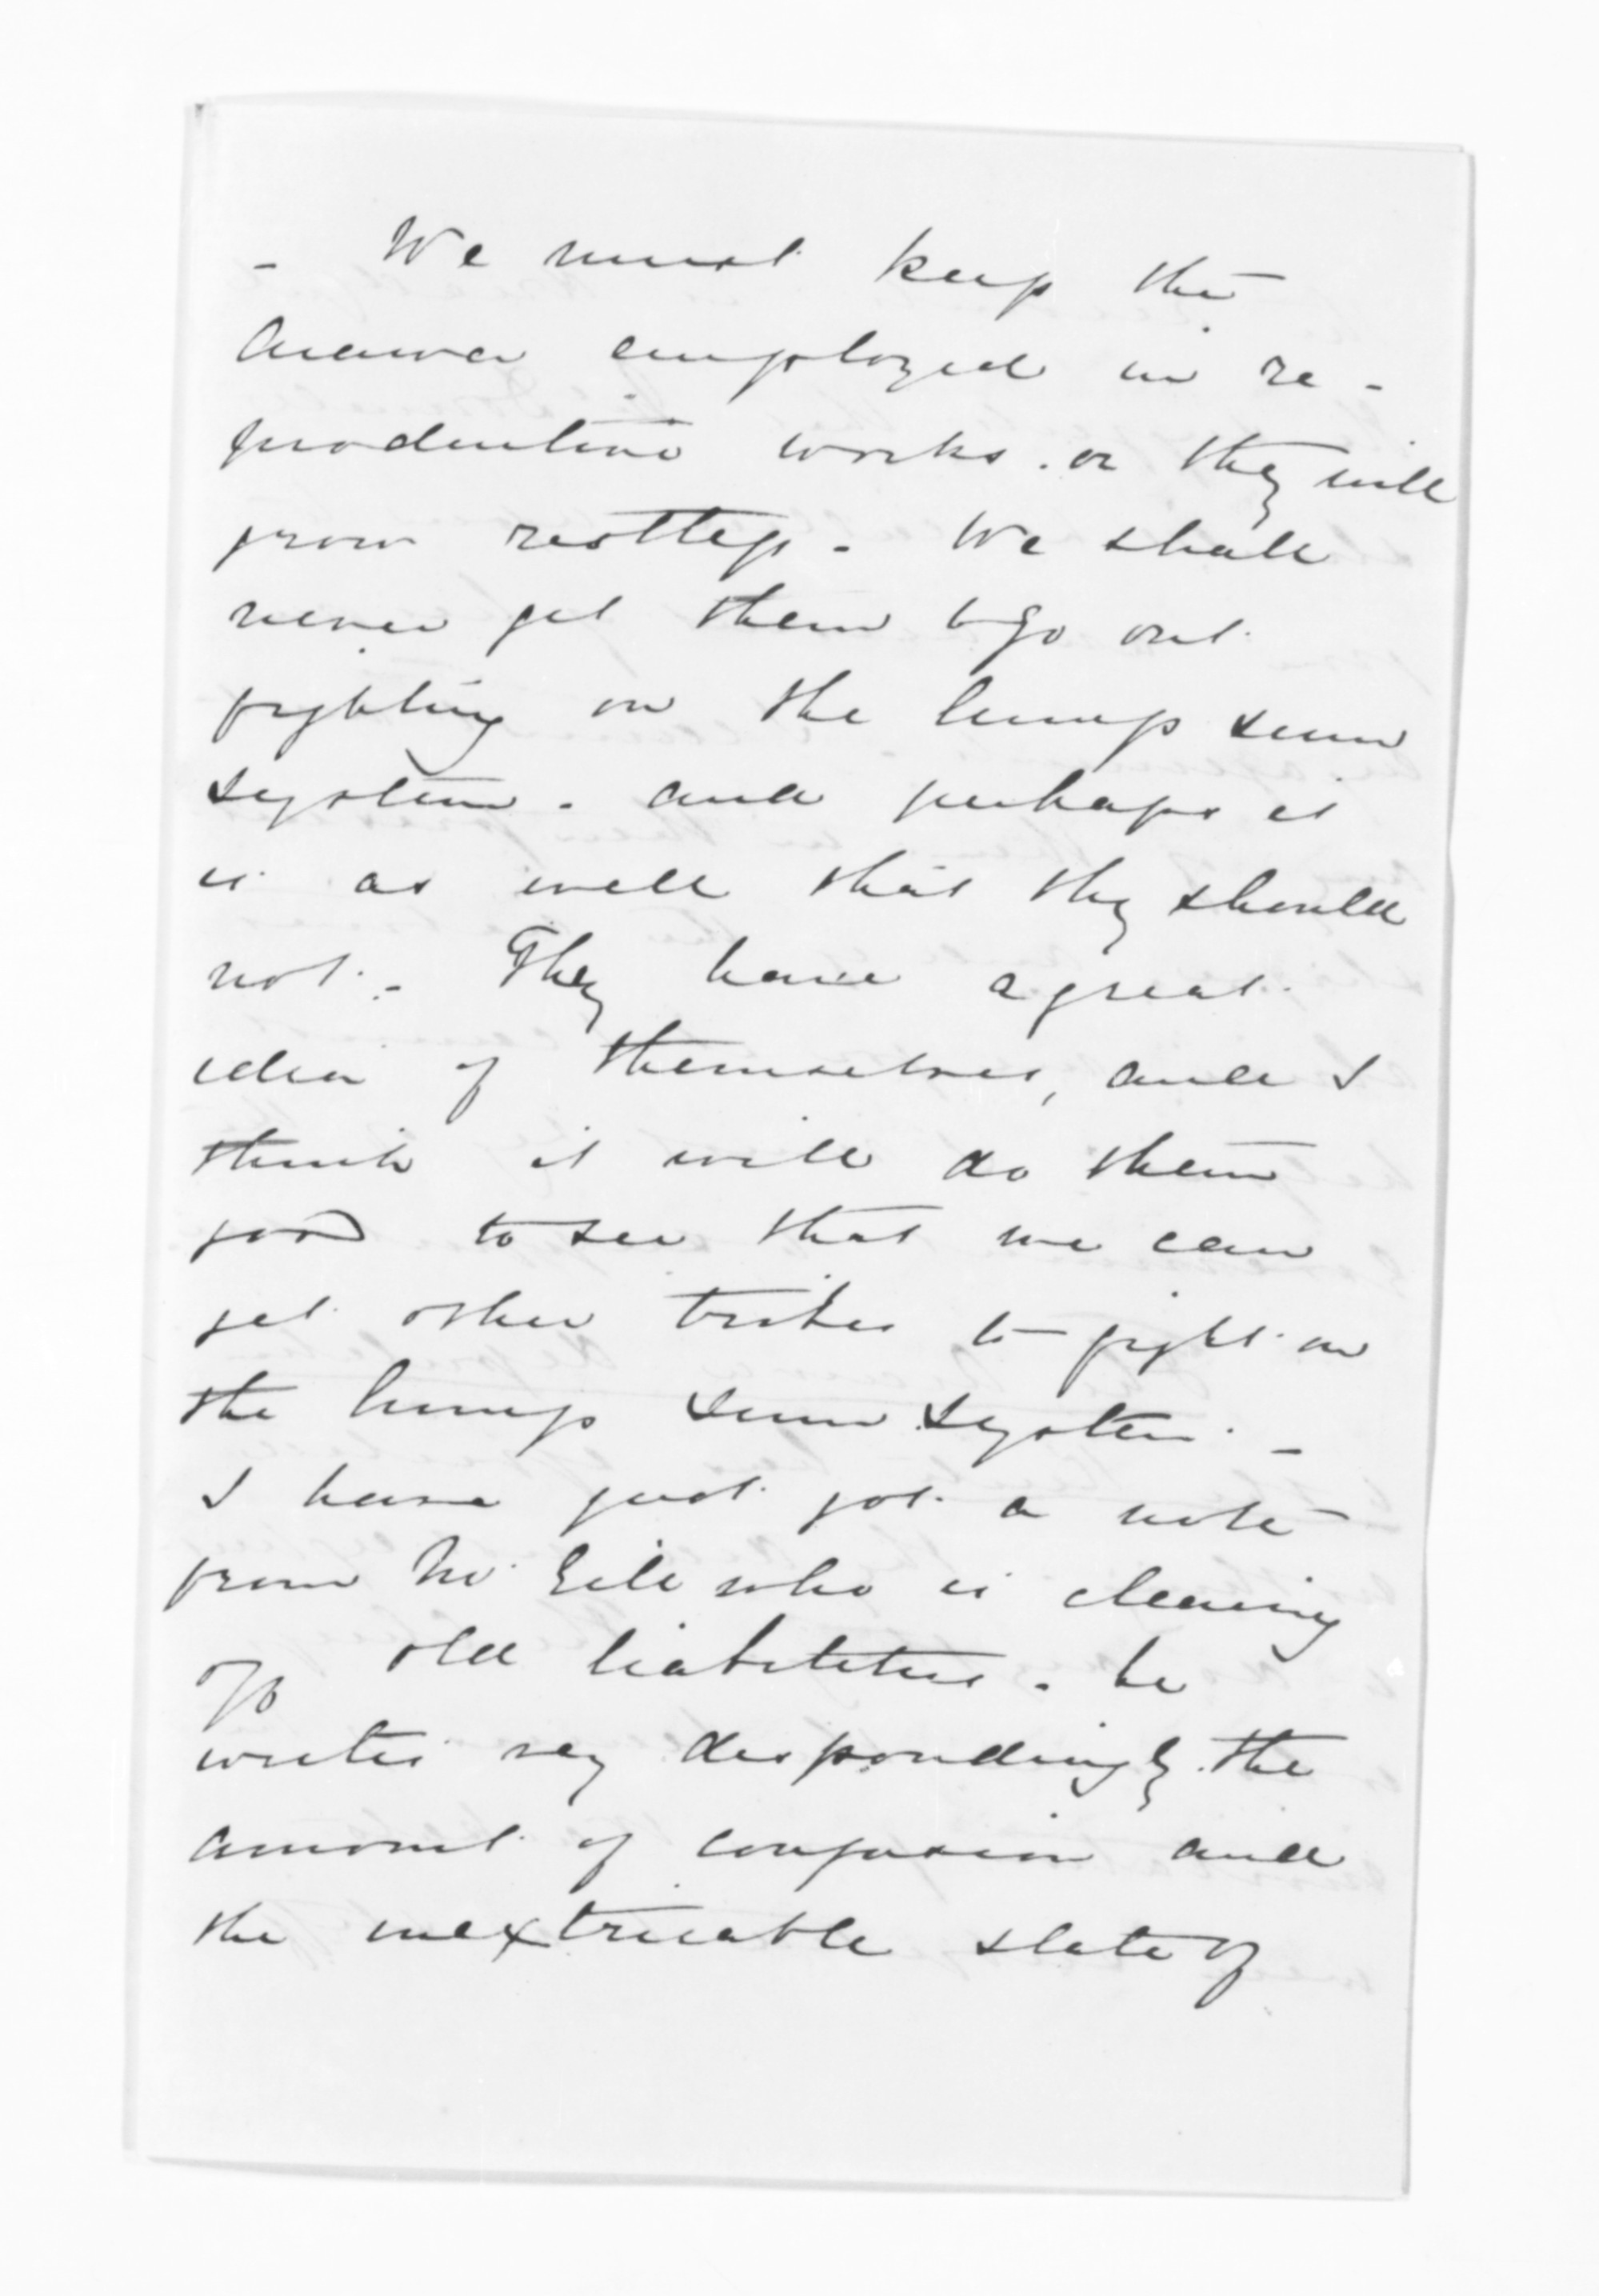 - We must keep the
Arawa employed in re-
productive works. or they will
grow restless - We shall
never get them to go out
fighting on the lump sum
system. and perhaps it
is as well that they should
not. - They have a great
idea of themselves, and I
think it will do them
good to see that we can
get other tribes to fight on
the lump sum system. -
I have just got a note
from Mr Gill who is clearing
off old liabilities. he
writes very despondingly. the
amount of confusion and
the inextricable state of